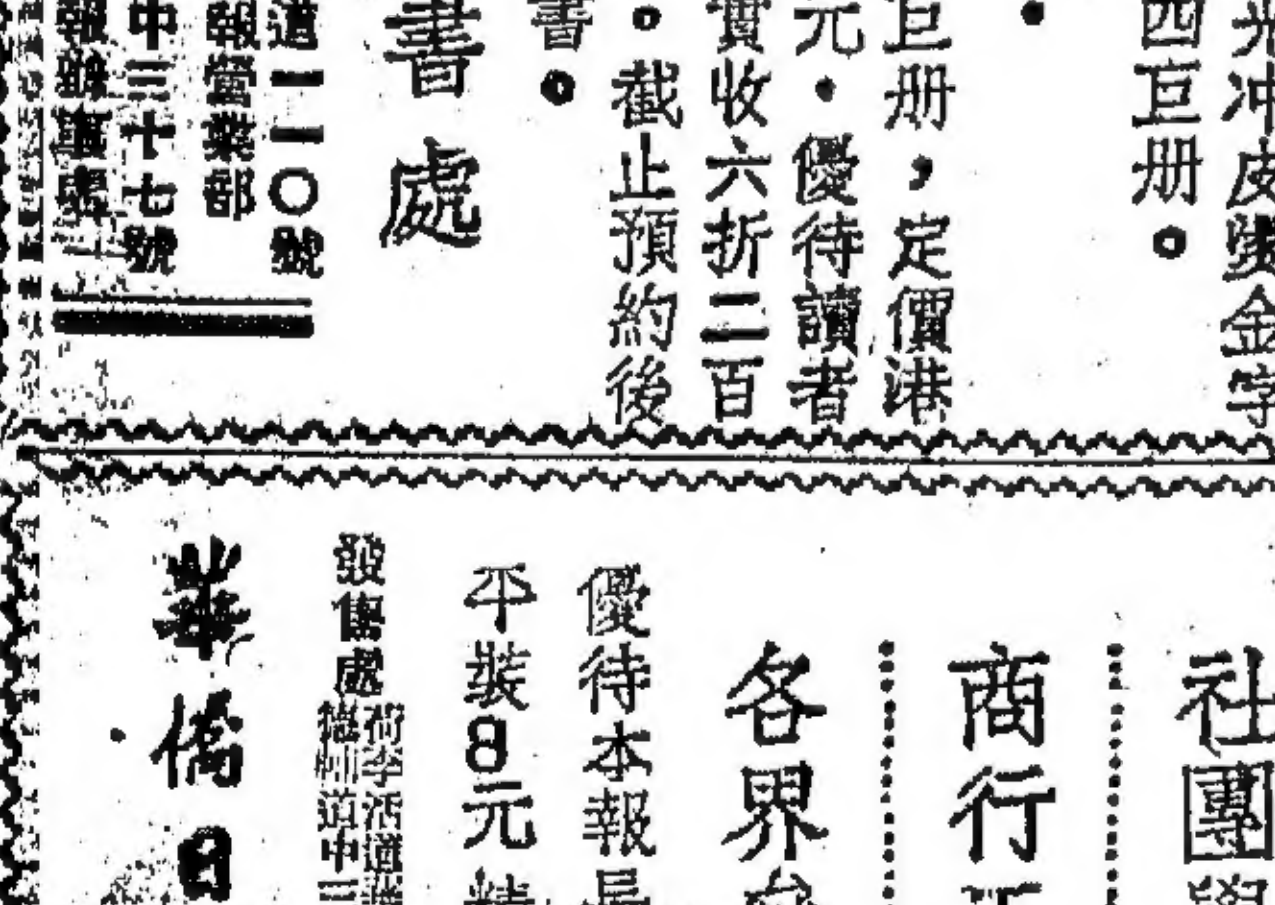 光冲皮燙金字
四巨册。
巨册，定價港
元·優待讀者
實收六折二百
。截止預約後
書。
書處
道一一〇號
報營業部
中三十七號
報辦事處
社團
商行
各界
優待本報
平裝8元
發售處
荷李活道
德輔道中三
華僑日